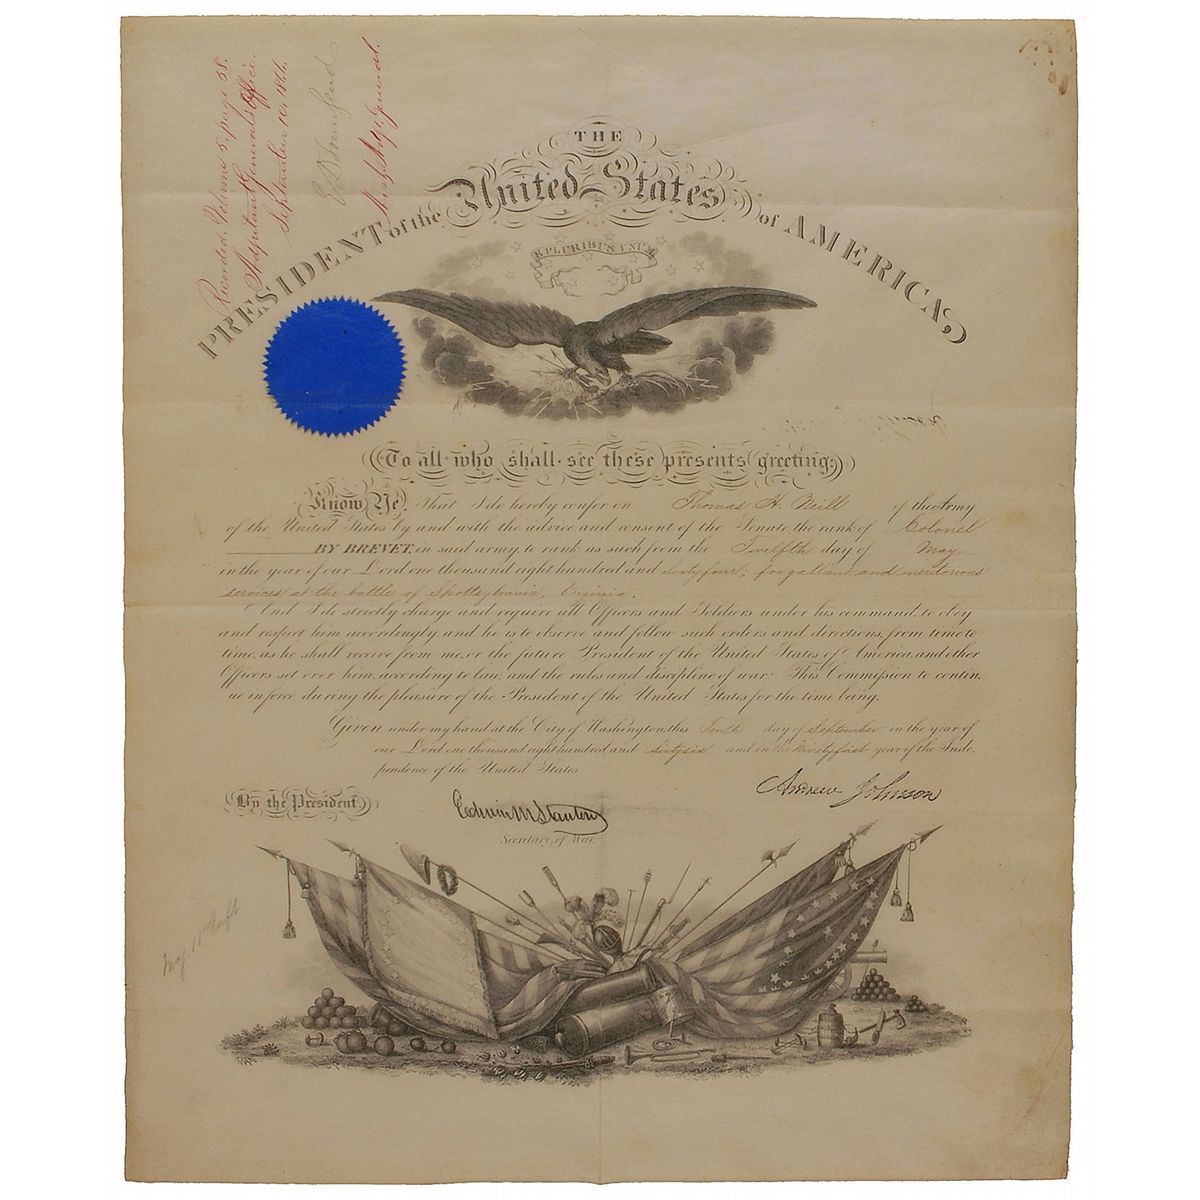 Recorded, Volume 5, page 38.
Adjutant General's Office.
September 10, 1866.
E D Townsend
Asst. Adjt. General.
THE
PRESIDENT of the United States of AMERICA,
E PLURIBUS UNUM
To all who shall see these presents greeting:
Know Ye, That I do hereby confer on Thomas H. Neill of the Army
of the United States by and with the advice and consent of the Senate the rank of Colonel
BY BREVET, in said army, to rank as such from the Twelfth day of May
in the year of our Lord one thousand eight hundred and sixty four; for gallant and meritorious
services at the battle of Spottsylvania, Virginia.
And I do strictly charge and require all Officers and Soldiers under his command, to obey
and respect him accordingly and he is to observe and follow such orders and directions, from time to
time, as he shall receive from me, or the future President of the United States of America, and other
Officers set over him, according to law, and the rules and discipline of war. This Commission to contin-
ue in force during the pleasure of the President of the United States for the time being.
Given under my hand at the City of Washington, this Tenth day of September in the year of
our Lord one thousand eight hundred and sixty six and in the ninety first year of the Inde-
pendence of the United States
By the President, Andrew Johnson
Edwin M Stanton
Secretary of War.
Maj. 11th Inf.